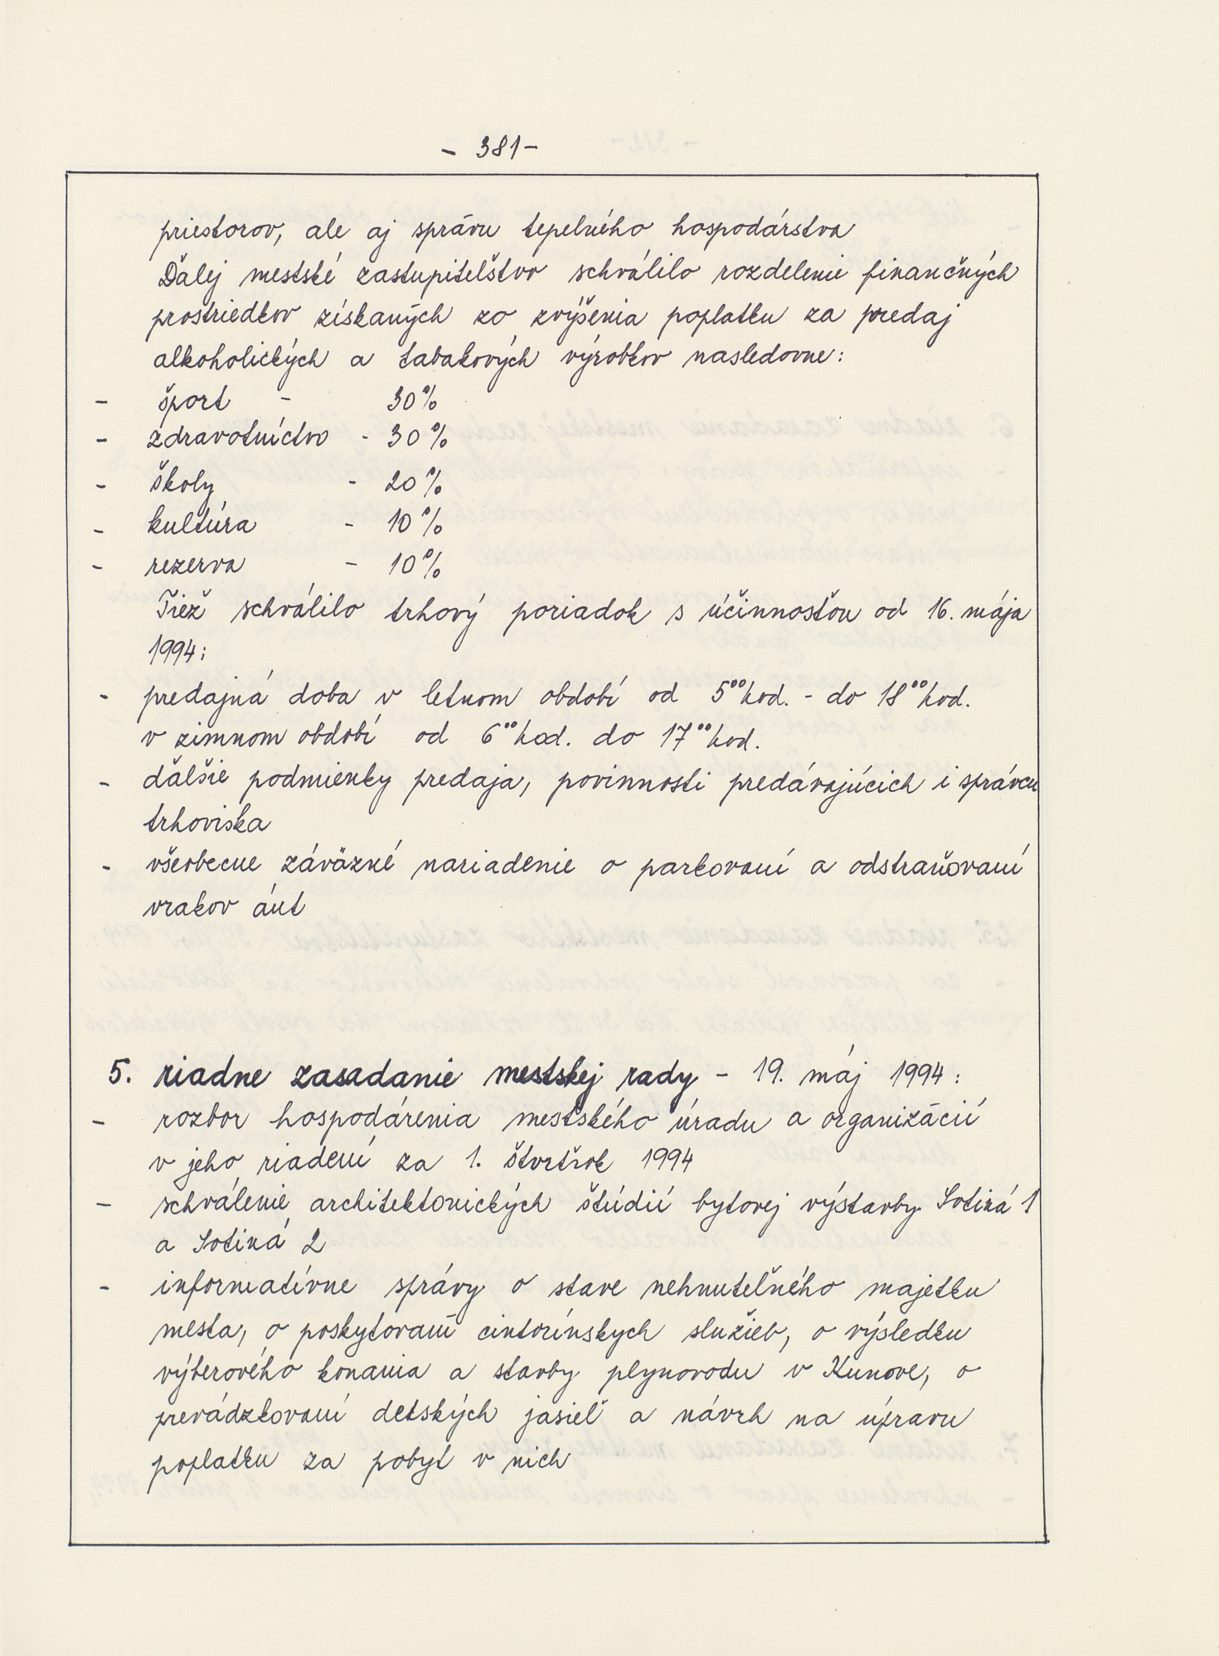 - 381-
priestorov, ale aj správu tepelného hospodárstva
Ďalej mestské zastupiteľstvo schválilo rozdelenie finančných
prostriedkov získaných zo zvýšenia poplatku za predaj
alkoholických a tabakových výrobkov nasledovne:
- šport - 30%
- zdravotníctvo - 30%
- školy - 20%
- kultúra - 10%
- rezerva - 10%
Tiež schválilo trhový poriadok s účinnosťou od 16. mája
1994:
- predajná doba v letnom období od 5⁰⁰hod. - do 18⁰⁰hod.
v zimnom období od 6⁰⁰hod. do 17⁰⁰hod.
- ďalšie podmienky predaja, povinnosti predávajúcich i správcu
trhoviska
- všeobecne záväzné nariadenie o parkovaní a odstraňovaní
vrakov áut
5. riadne zasadanie mestskej rady - 19. máj 1994:
- rozbor hospodárenia mestského úradu a organizácií
v jeho riadení za 1. štvrťrok 1994
- schválenie architektonických štúdií bytovej výstavby Sotiná 1
a Sotiná 2
- informatívne správy o stave nehnuteľného majetku
mesta, o poskytovaní cintorínskych služieb, o výsledku
výberového konania a stavby plynovodu v Kunove, o
prevádzkovaní detských jasieľ a návrh na úpravu
poplatku za pobyt v nich